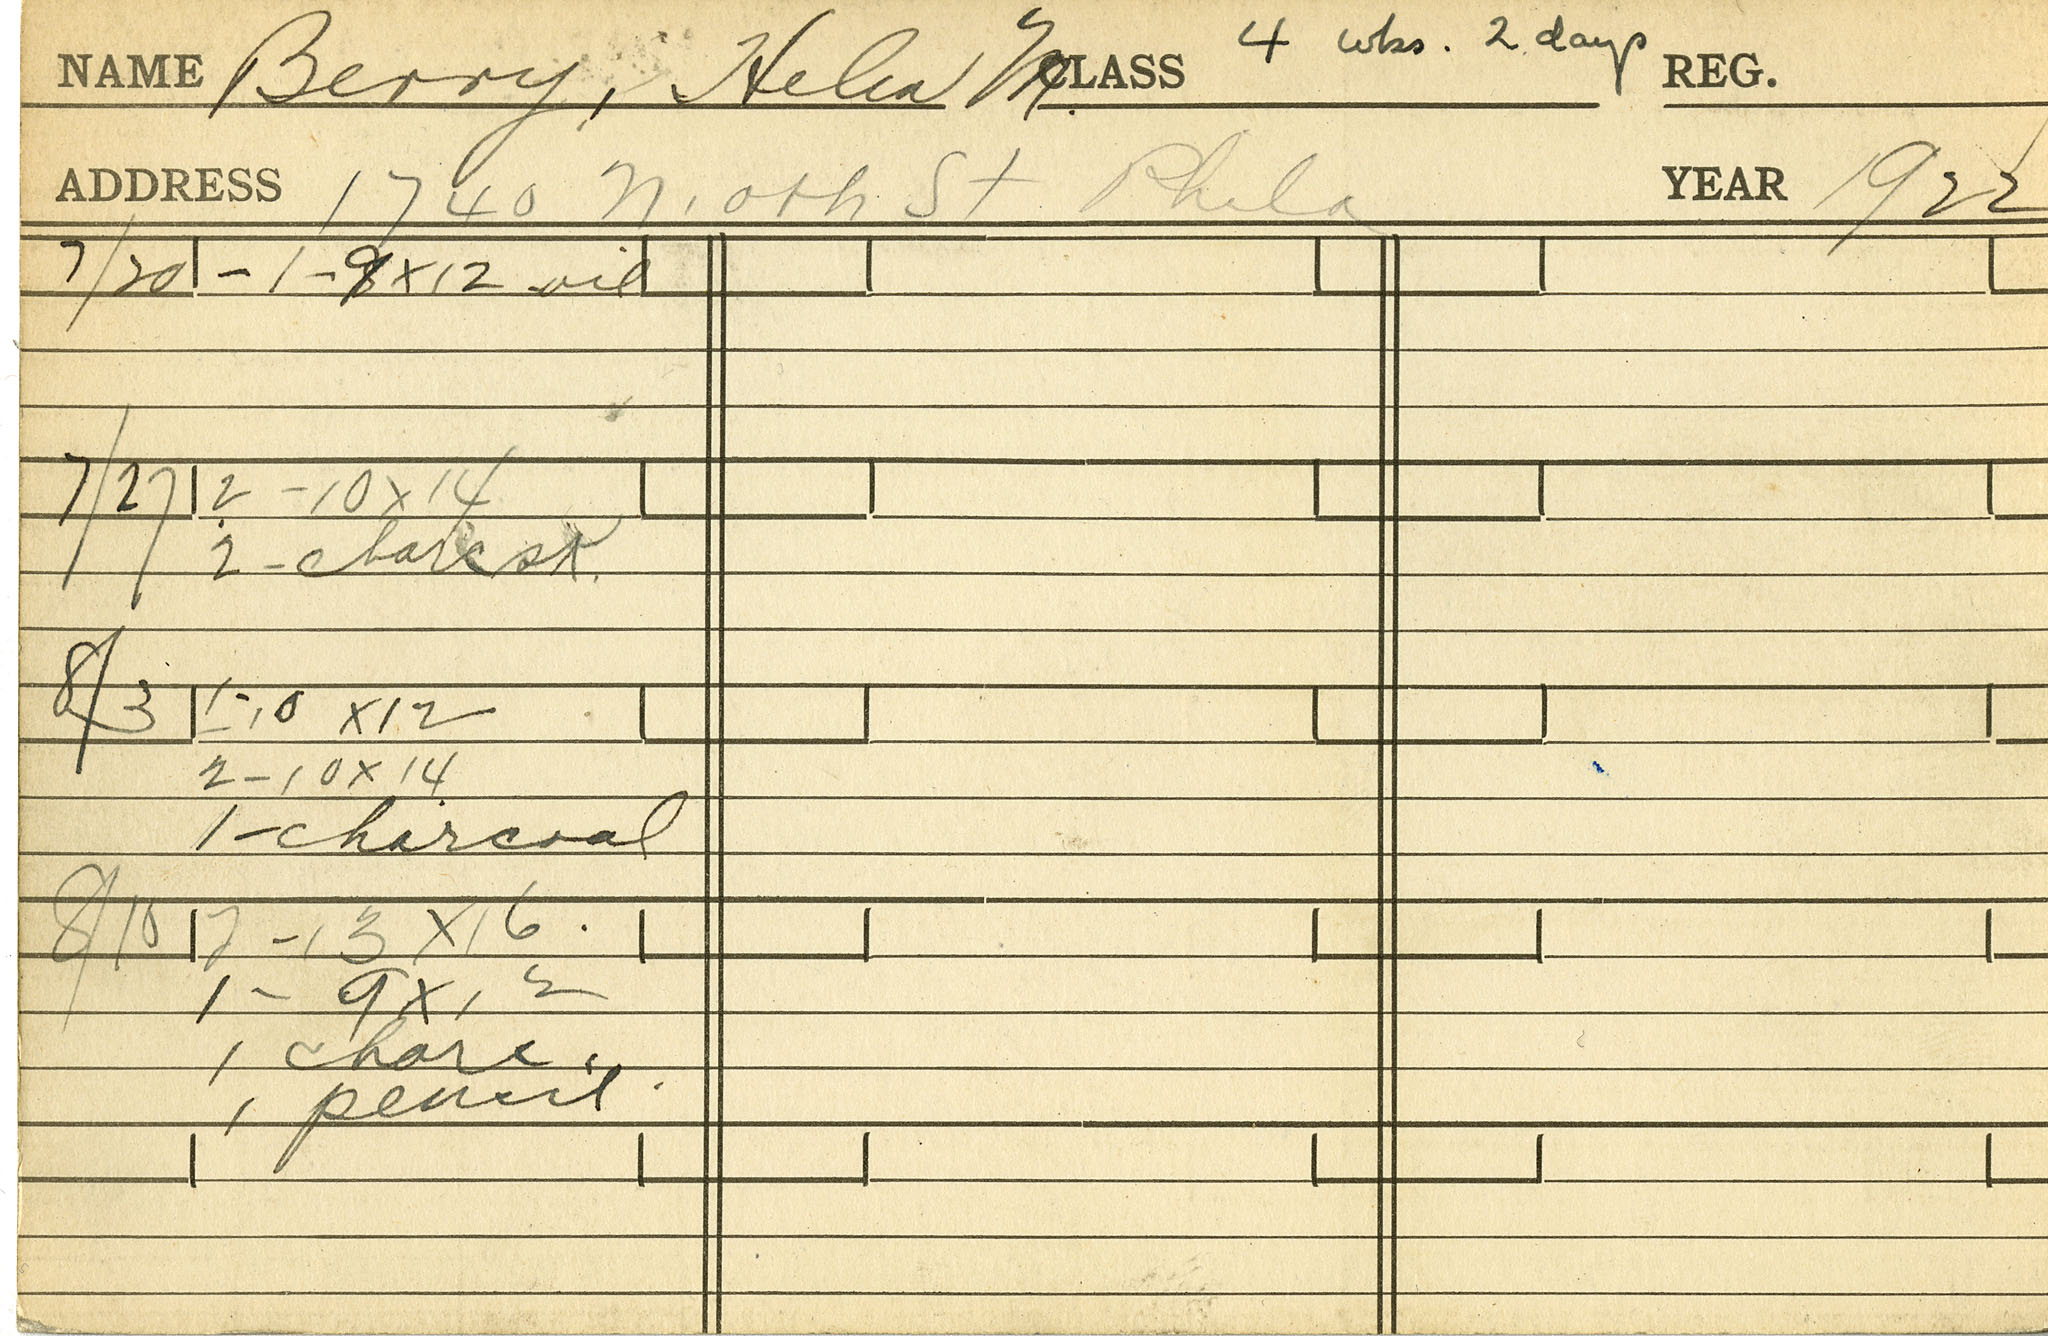 NAME Berry, Helen M. CLASS 4 wks. 2 days REG.
ADDRESS 1740 N. St Phila YEAR 1922
7/20 - 1 - 9x12 oil
7/27 2 - 10x14
2 - charc sk.
8/3 1-10 x12
2-10x14
1-charcoal
8/10 2 - 13 x16.
1 - 9x12
1 charc.
1 pencil.